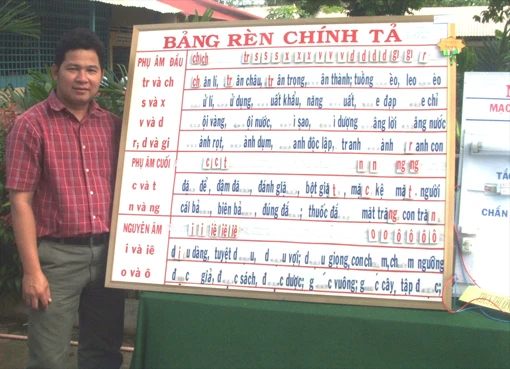 BẢNG RÈN CHÍNH TẢ
PHỤ ÂM ĐẦU ch ch tr s s s x x x v v v d d d d gi gi r
tr và ch ch ân lí, tr ân châu, tr ân trọng, ... ân thành; tuồng ... èo, leo ... èo
s và x ... ử lí, ... ử dụng, ... uất khẩu, năng ... uất, ... e đạp ... e chỉ
v và d ... ội vàng, ... ội nước, ... ì sao, ... ì dượng, ... àng lời ... àng nước
r; d và gi ... ành rọt, ... ành dụm, ... anh độc lập, tranh ... ành r anh con
PHỤ ÂM CUỐI c c t n n ng ng
c và t đá... dế, đậm đà..., đánh giá..., bột giặ t, mặ c kệ mặ t người
n và ng cái bà..., biên bả..., đúng đắ..., thuốc đắ... mặt trăng, con tră n,
NGUYÊN ÂM i i i iê iê iê o o ô ô ô ô
i và iê d ị u dàng, tuyệt d...u, d...u vợi; d...u giọng, con ch...m, ch...m ngưỡng
o và ô đ...c giả, đ...c sách, đ...c dược; g...c vuông; g...c cây, tập đ...c;
MẠC
CHẤN